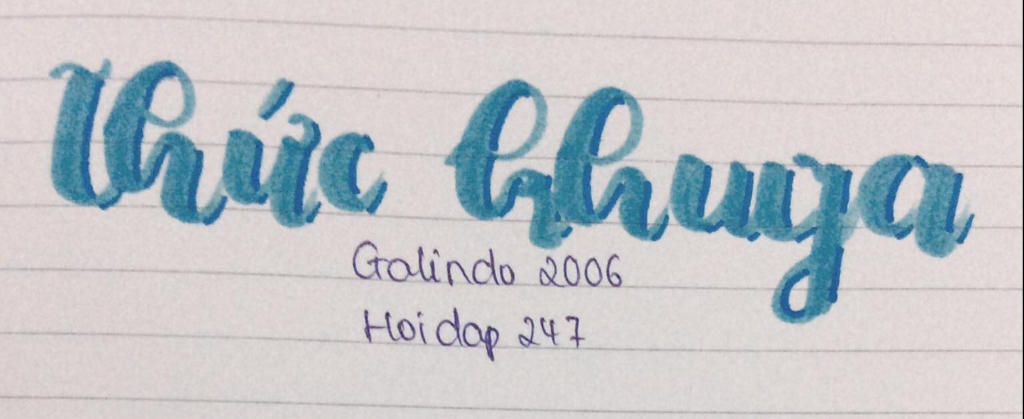 thức khuya
Galindo 2006
Hoidap 247